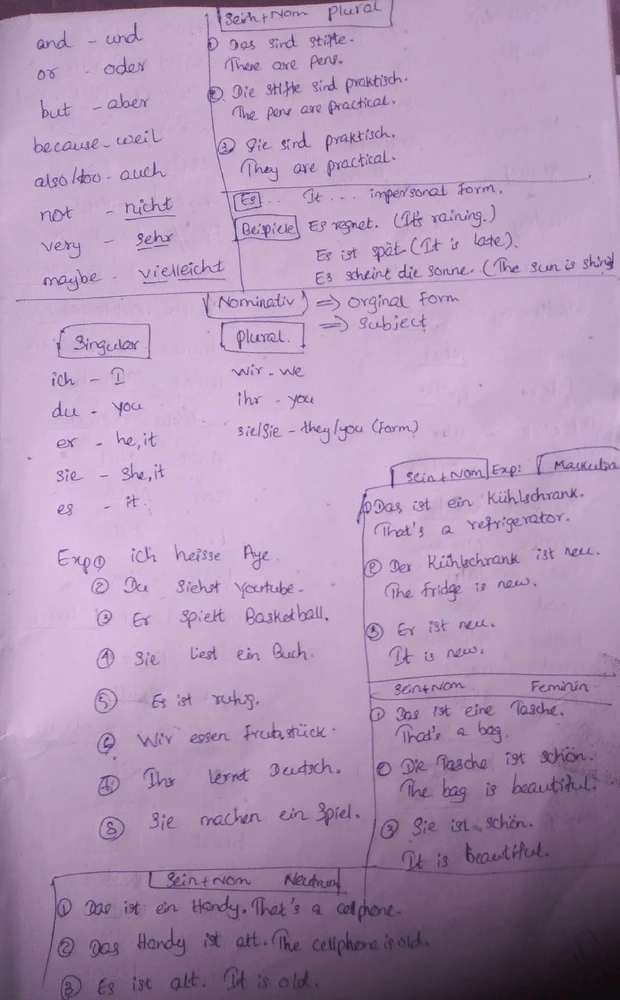 and - und
or - oder
but - aber
because - weil
also/too - auch
not - nicht
very - sehr
maybe - vielleicht
Sein+Nom Plural
① Das sind Stifte.
There are pens.
② Die Stifte sind praktisch.
The pens are practical.
③ Sie sind praktisch.
They are practical.
Es... It... impersonal form.
Beispiele Es regnet. (It's raining.)
Es ist spät. (It is late).
Es scheint die sonne. (The sun is shing
Nominativ => Orginal Form
=> Subject
Singular
ich - I
du - you
er - he, it
sie - she, it
es - it
Plural.
wir - we
ihr - you
sie/Sie - they/you (form)
Exp ① ich heisse Aye.
② Du siehst youtube.
③ Er spielt Basketball.
④ Sie liest ein Buch.
⑤ Es ist ruhig.
⑥ Wir essen Fruhstück.
⑦ Ihr lernt Deutsch.
⑧ Sie machen ein Spiel.
Sein+Nom Exp: Maskulin
① Das ist ein Kühlschrank.
That's a refrigerator.
② Der Kühlschrank ist neu.
The fridge is new.
③ Er ist neu.
It is new.
Sein+Nom Feminin
① Das ist eine Tasche.
That's a bag.
② Die Tasche ist schön.
The bag is beautiful.
③ Sie ist schön.
It is beautiful.
Sein+Nom Neutrum
① Das ist ein Handy. That's a cellphone.
② Das Handy ist alt. The cellphone is old.
③ Es ist alt. It is old.